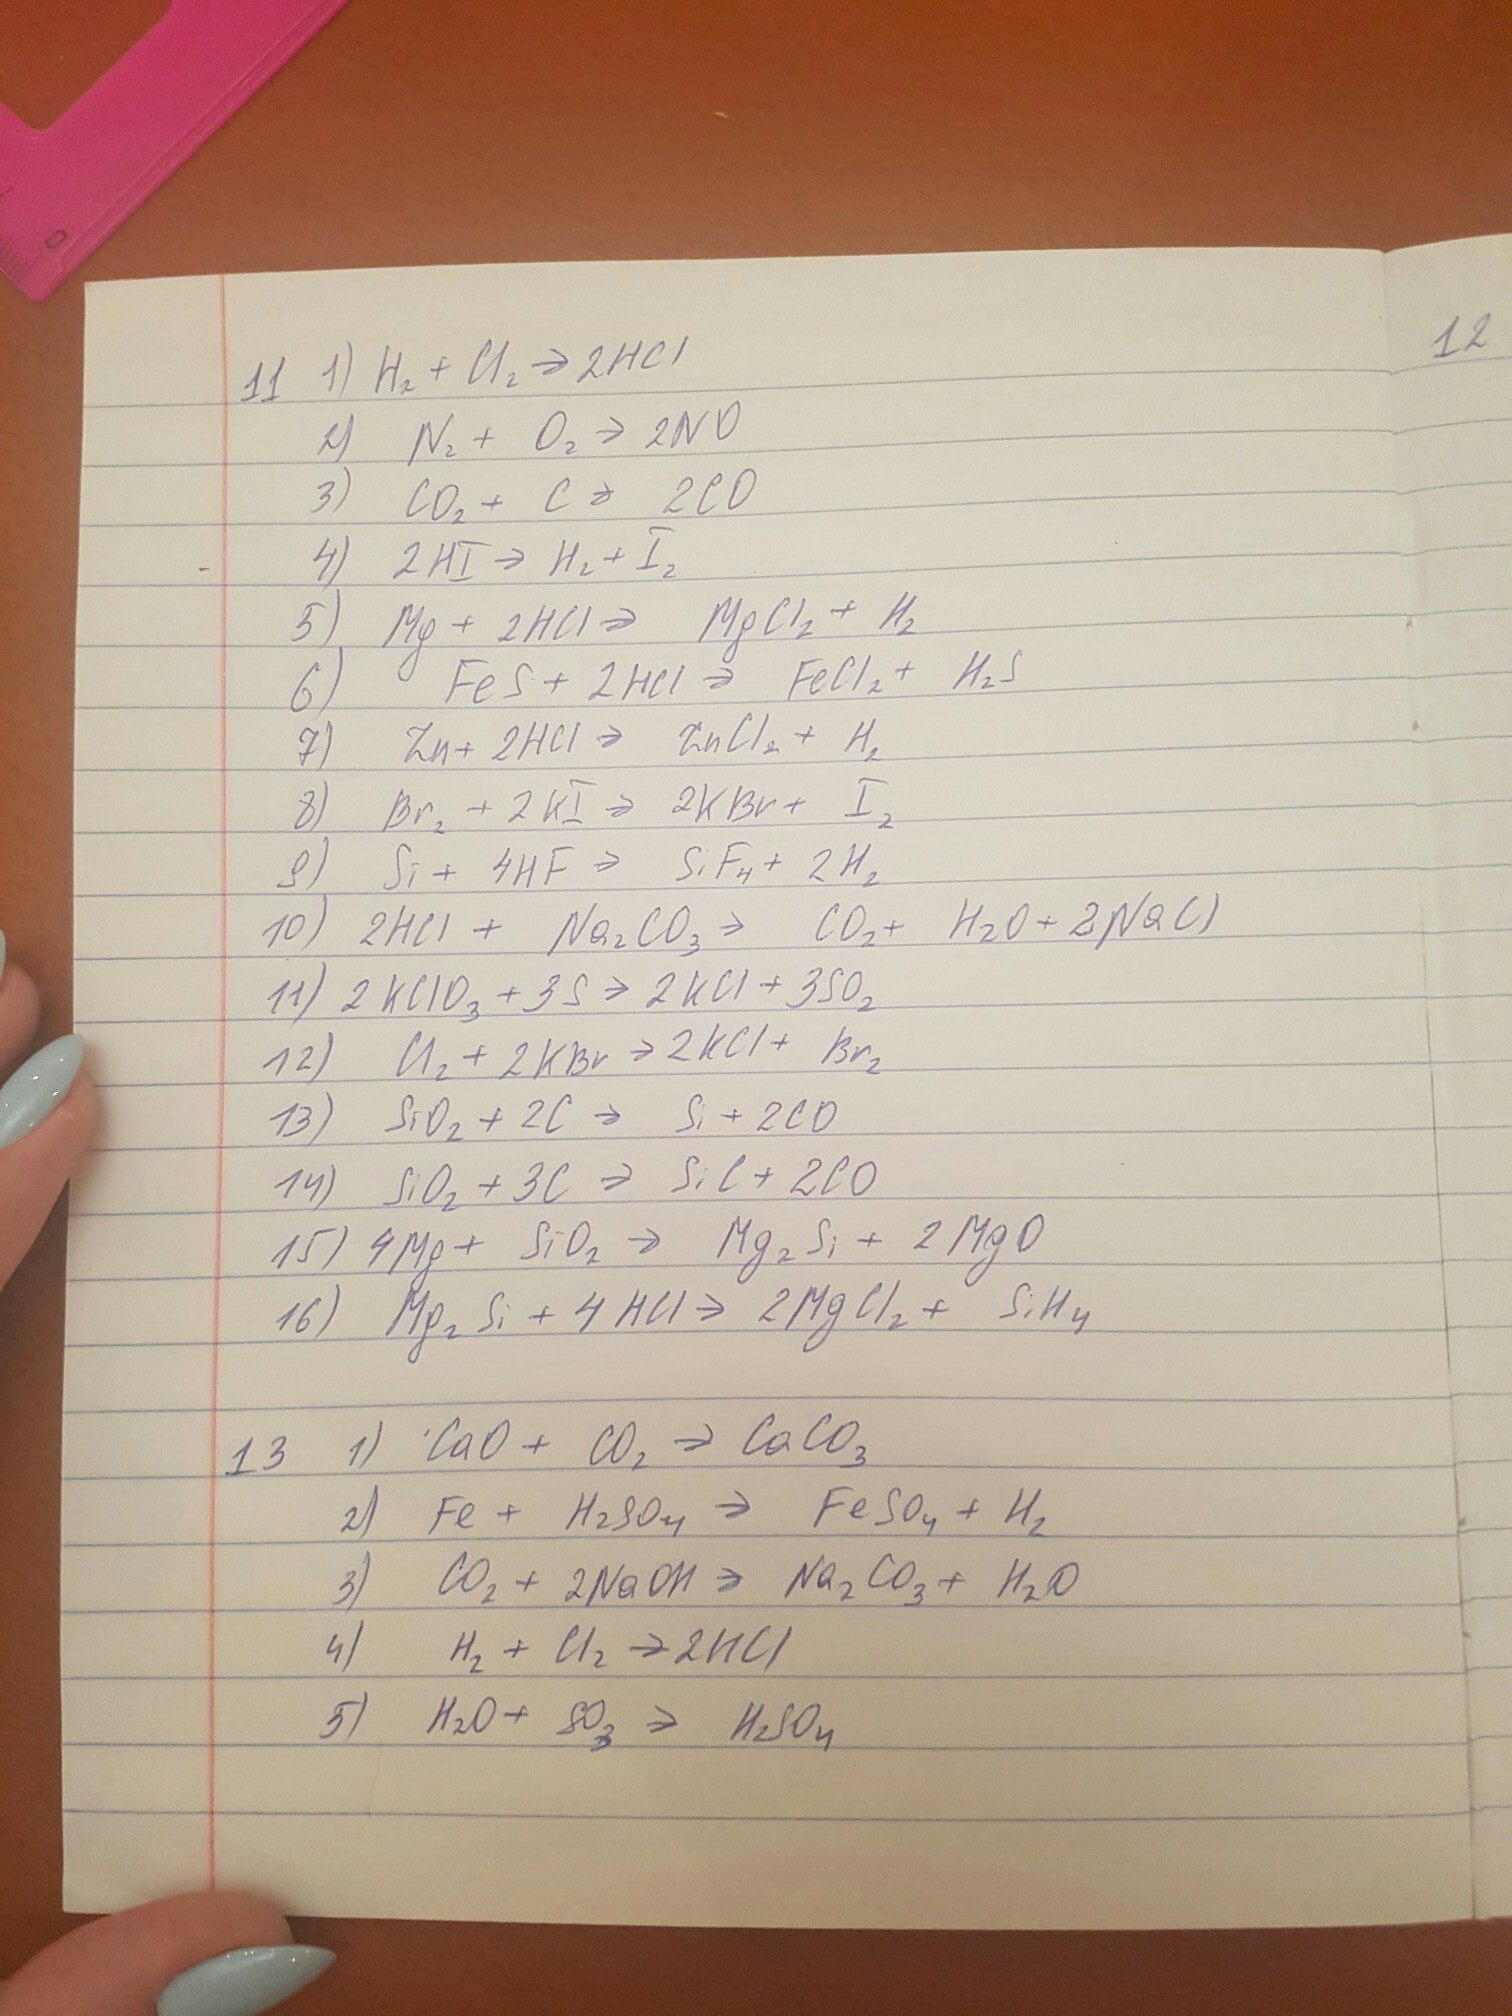 12
11 1) H₂ + Cl₂ → 2HCl
2) N₂ + O₂ → 2NO
3) CO₂ + C → 2CO
4) 2HI → H₂ + I₂
5) Mg + 2HCl → MgCl₂ + H₂
6) FeS + 2HCl → FeCl₂ + H₂S
7) Zn + 2HCl → ZnCl₂ + H₂
8) Br₂ + 2KI → 2KBr + I₂
9) Si + 4HF → SiF₄ + 2H₂
10) 2HCl + Na₂CO₃ → CO₂ + H₂O + 2NaCl
11) 2KClO₃ + 3S → 2KCl + 3SO₂
12) Cl₂ + 2KBr → 2KCl + Br₂
13) SiO₂ + 2C → Si + 2CO
14) SiO₂ + 3C → SiC + 2CO
15) 4Mg + SiO₂ → Mg₂Si + 2MgO
16) Mg₂Si + 4HCl → 2MgCl₂ + SiH₄
13 1) CaO + CO₂ → CaCO₃
2) Fe + H₂SO₄ → FeSO₄ + H₂
3) CO₂ + 2NaOH → Na₂CO₃ + H₂O
4) H₂ + Cl₂ → 2HCl
5) H₂O + SO₃ → H₂SO₄
0